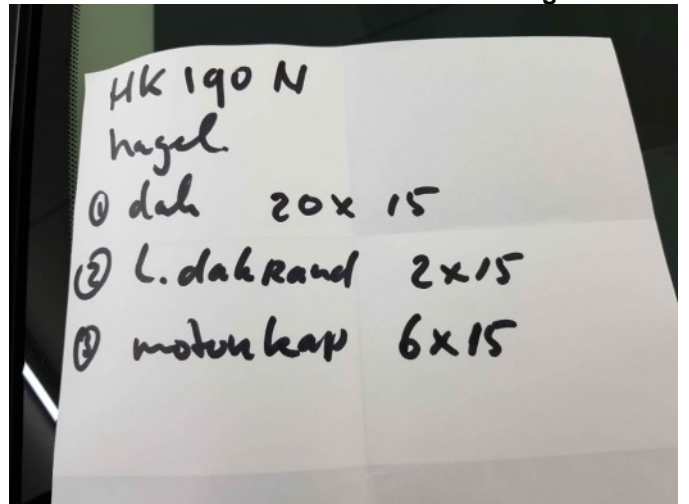 HK 190 N
hagel
① dak 20 x 15
② L. dakRand 2 x 15
③ motorkap 6 x 15